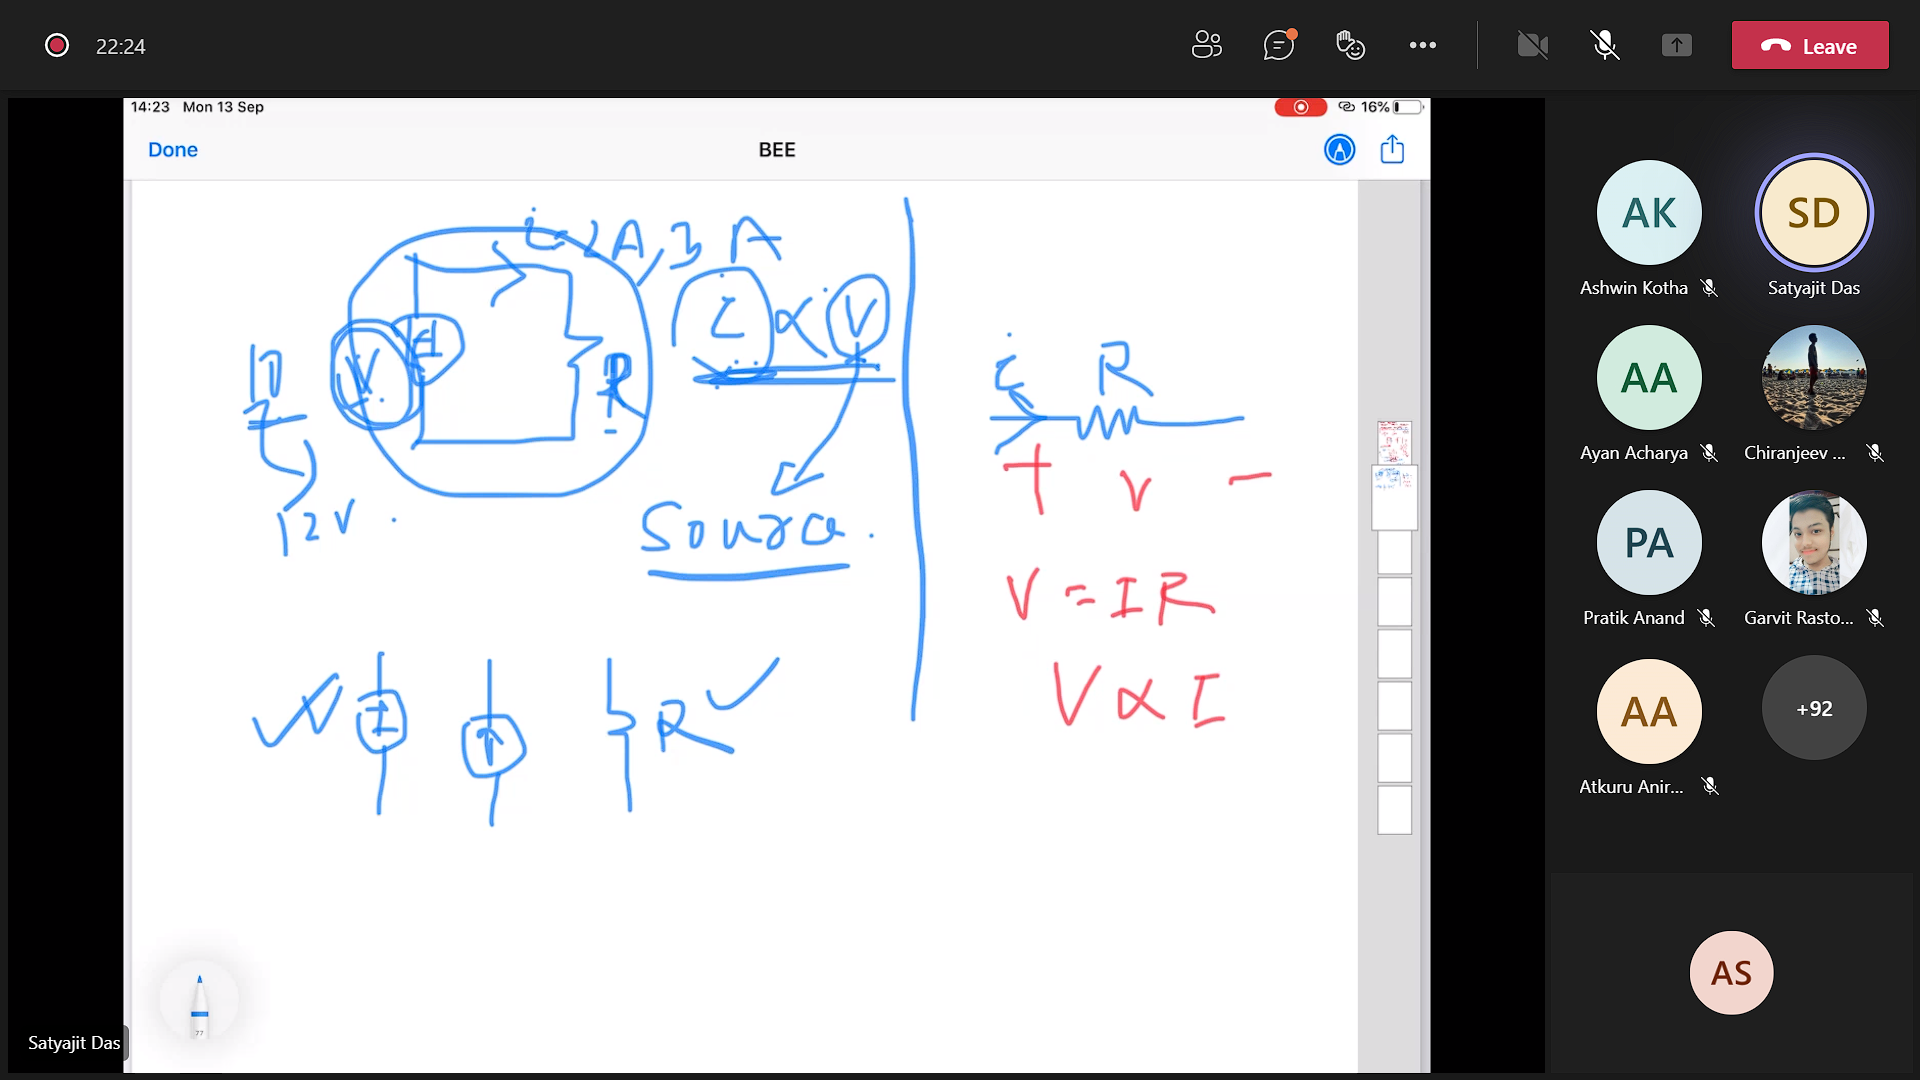 22:24
Leave
14:23 Mon 13 Sep
16%
Done
BEE
i = 2A, 3 A
i ∝ V
10
V
R
12V.
Source.
i R
+ V -
V = IR
V ∝ I
R
77
Satyajit Das
AK
Ashwin Kotha
SD
Satyajit Das
AA
Ayan Acharya
Chiranjeev ...
PA
Pratik Anand
Garvit Rasto...
AA
Atkuru Anir...
+92
AS